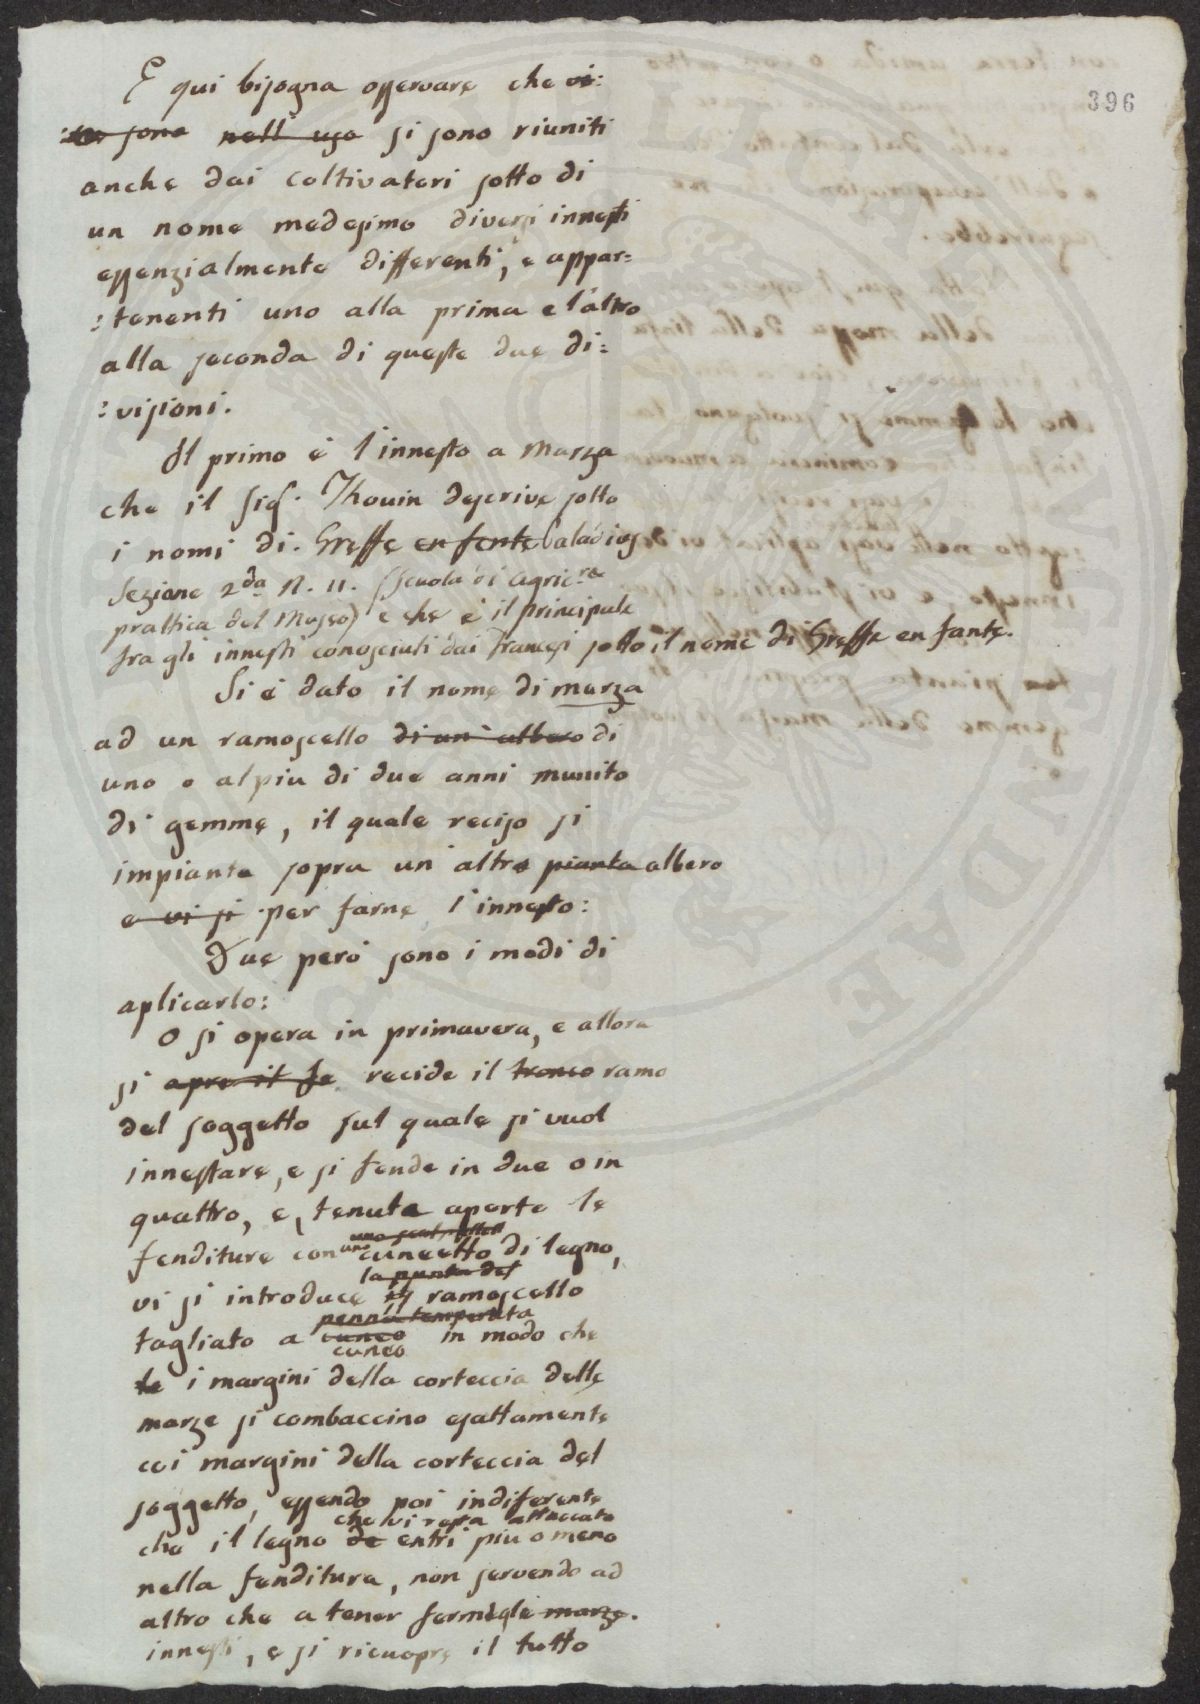 396
E qui bisogna osservare che vi:
:no sono nell' uso si sono riuniti
anche dai coltivatori sotto di
un nome medesimo diversi innesti
essenzialmente differenti, e appar=
:tenenti uno alla prima e l'altro
alla seconda di queste due di:
:visioni.
Il primo è l'innesto a Marza
che il Sig. Thouin descrive sotto
i nomi di. Greffe en fente
Sezione 2da N. 11. (Scuola di Agric.ra
prattica del Museo) e che è il principale
fra gli innesti conosciuti dai Francesi sotto il nome di Greffe en fante.
Si è dato il nome di marza
ad un ramoscello di un albero di
uno o al piu di due anni munito
di gemme, il quale reciso si
impianta sopra un altro pianta albero
e vi si per farne l'innesto:
Due però sono i modi di
aplicarlo:
O si opera in primavera, e allora
si apre il fe recide il tronco ramo
del soggetto sul quale si vuol
innestare, e si fende in due o in
quattro, e, tenute aperte le
uno
fenditure con uno cuneetto di legno,
la punta del
vi si introduce il ramoscello
penna temperata
tagliato a cuneo in modo che
cuneo
le i margini della corteccia delle
marze si combaccino esattamente
coi margini della corteccia del
soggetto, essendo poi indiferente
che vi resta attaccato
che il legno de entri piu o meno
nella fenditura, non servendo ad
altro che a tener fermi gli marze.
innesti, e si ricuopre il tutto